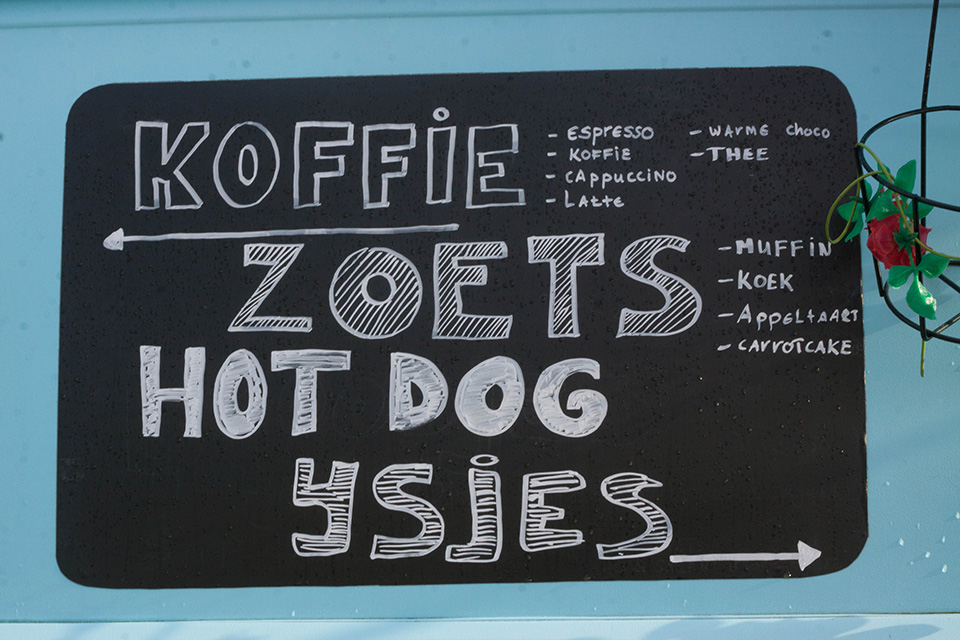 KOFFIE
- ESPRESSO
- KOFFIE
- CAPPUCCINO
- LATTE
- WARME CHOCO
- THEE
ZOETS
- MUFFIN
- KOEK
- APPELTAART
- CARROTCAKE
HOT DOG
YSjES